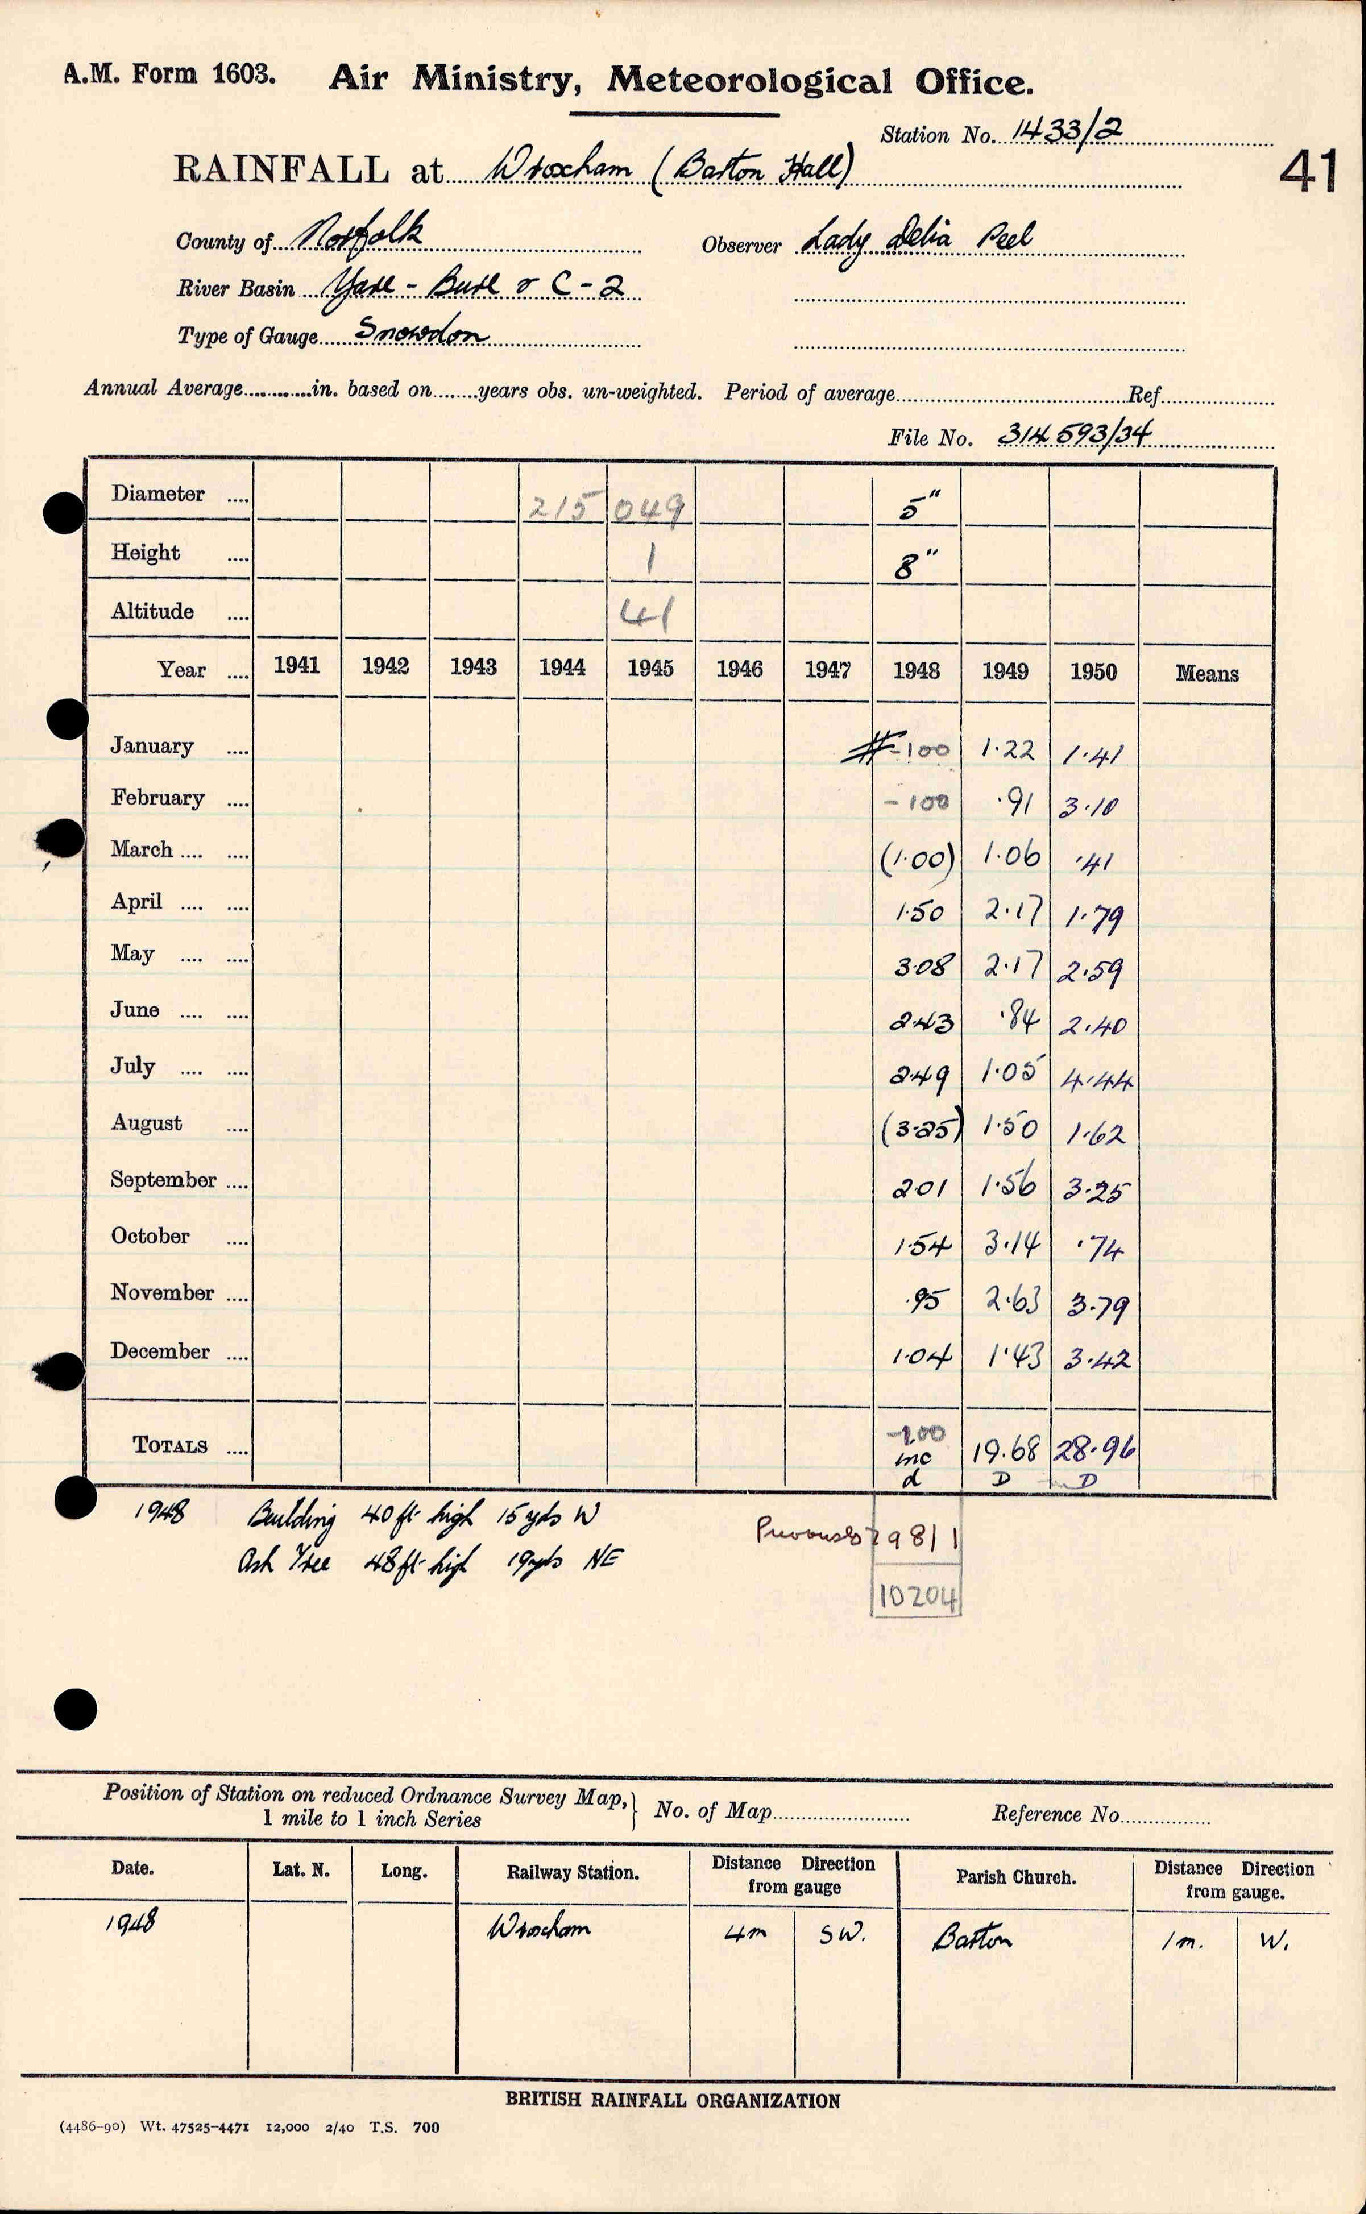 A.M. Form 1603. Air Ministry, Meteorological Office.
Station No. 1433/2
RAINFALL at Wroxham (Barton Hall)
41
County of Norfolk Observer Lady Delia Peel
River Basin Yare - Bure & C - 2
Type of Gauge Snowdon
Annual Average............in. based on........years obs. un-weighted. Period of average........Ref........
File No. 314593/34
Diameter .... 215 049 5"
Height .... 1 8"
Altitude .... 41
Year .... 1941 1942 1943 1944 1945 1946 1947 1948 1949 1950 Means
January .... -100 1.22 1.41
February .... -100 .91 3.10
March .... .... (1.00) 1.06 .41
April .... .... 1.50 2.17 1.79
May .... .... 3.08 2.17 2.59
June .... .... 2.43 .84 2.40
July .... .... 2.49 1.05 4.44
August .... (3.25) 1.50 1.62
September .... 2.01 1.56 3.25
October .... 1.54 3.14 .74
November .... .95 2.63 3.79
December .... 1.04 1.43 3.42
TOTALS .... -100 19.68 28.96
inc
d D D
1948 Building 40 ft high 15 yds W
Ash Tree 48 ft high 19 yds NE
9811
10204
Position of Station on reduced Ordnance Survey Map, } No. of Map........ Reference No........
1 mile to 1 inch Series
Date. Lat. N. Long. Railway Station. Distance Direction from gauge Parish Church. Distance Direction from gauge.
1948 Wroxham 4m SW. Barton 1m. W.
BRITISH RAINFALL ORGANIZATION
(4486-90) Wt. 47525-4471 12,000 2/40 T.S. 700